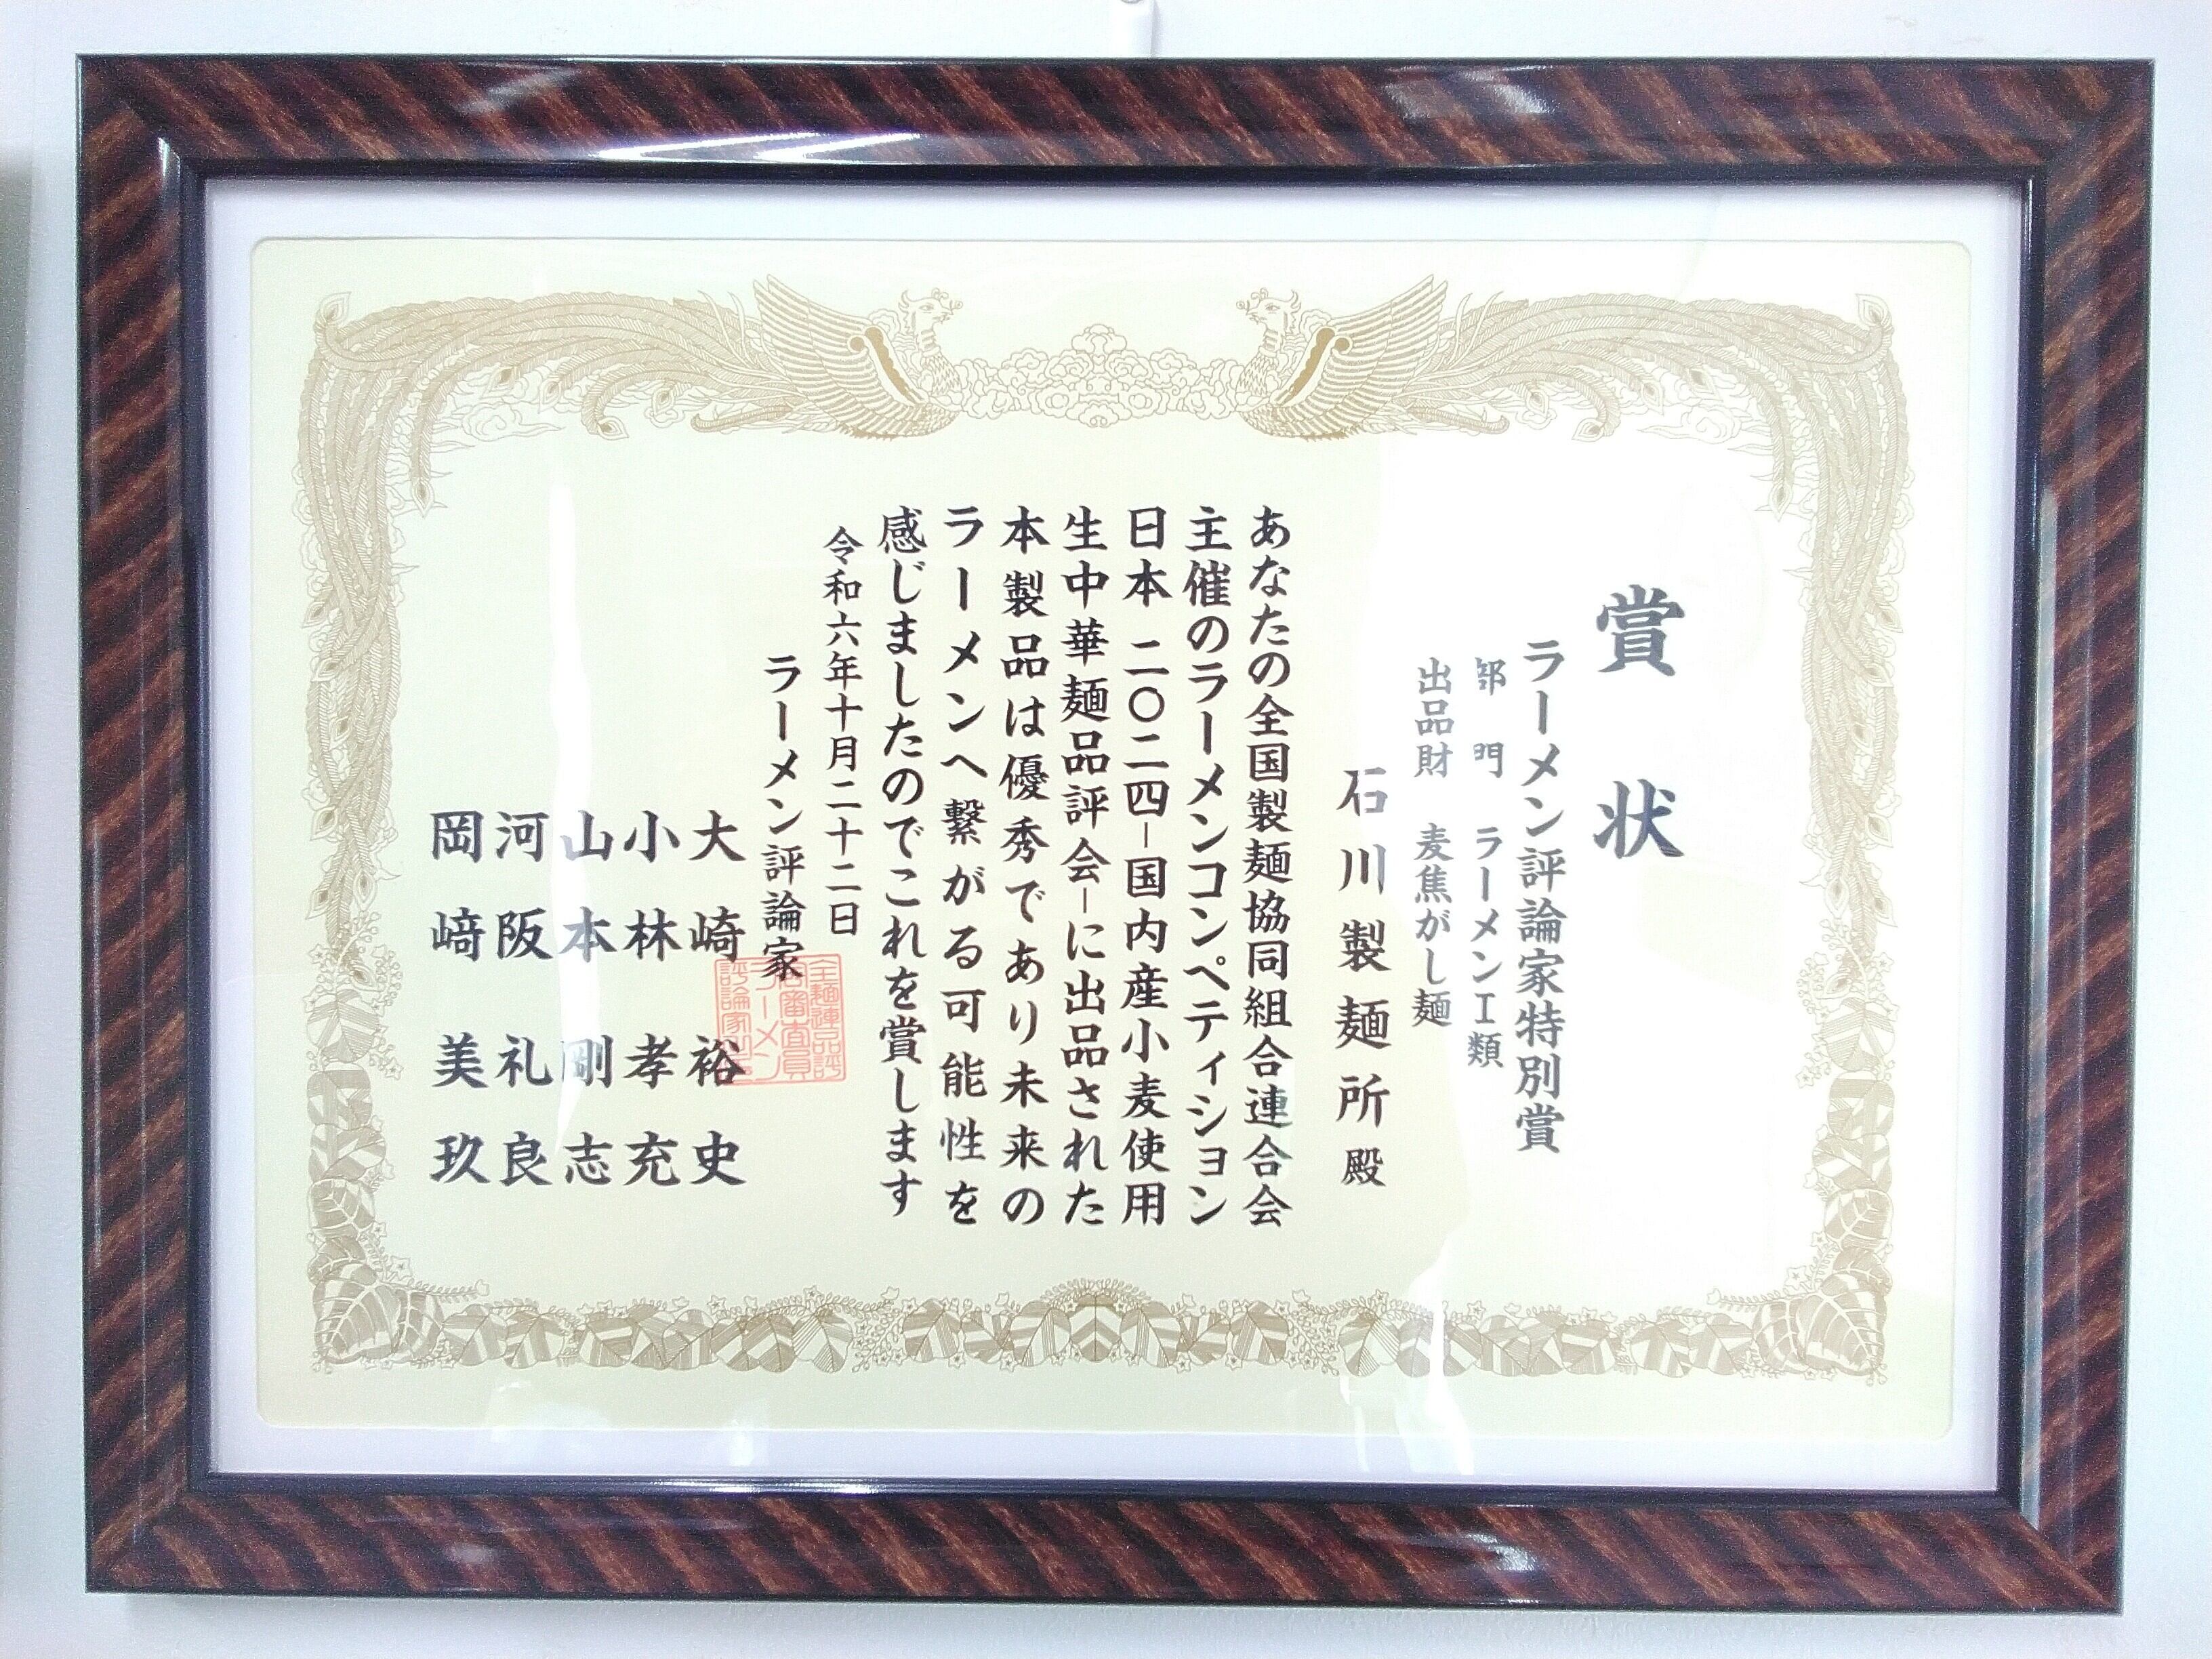 賞状
ラーメン評論家特別賞
部門 ラーメンⅠ類
出品財 麦焦がし麺
石川製麺所殿
あなたの全国製麺協同組合連合会
主催のラーメンコンペティション
日本 二〇二四-国内産小麦使用
生中華麺品評会-に出品された
本製品は優秀であり未来の
ラーメンへ繋がる可能性を
感じましたのでこれを賞します
令和六年十月二十二日
ラーメン評論家
大崎裕史
小林孝充
山本剛志
河阪礼良
岡﨑美玖